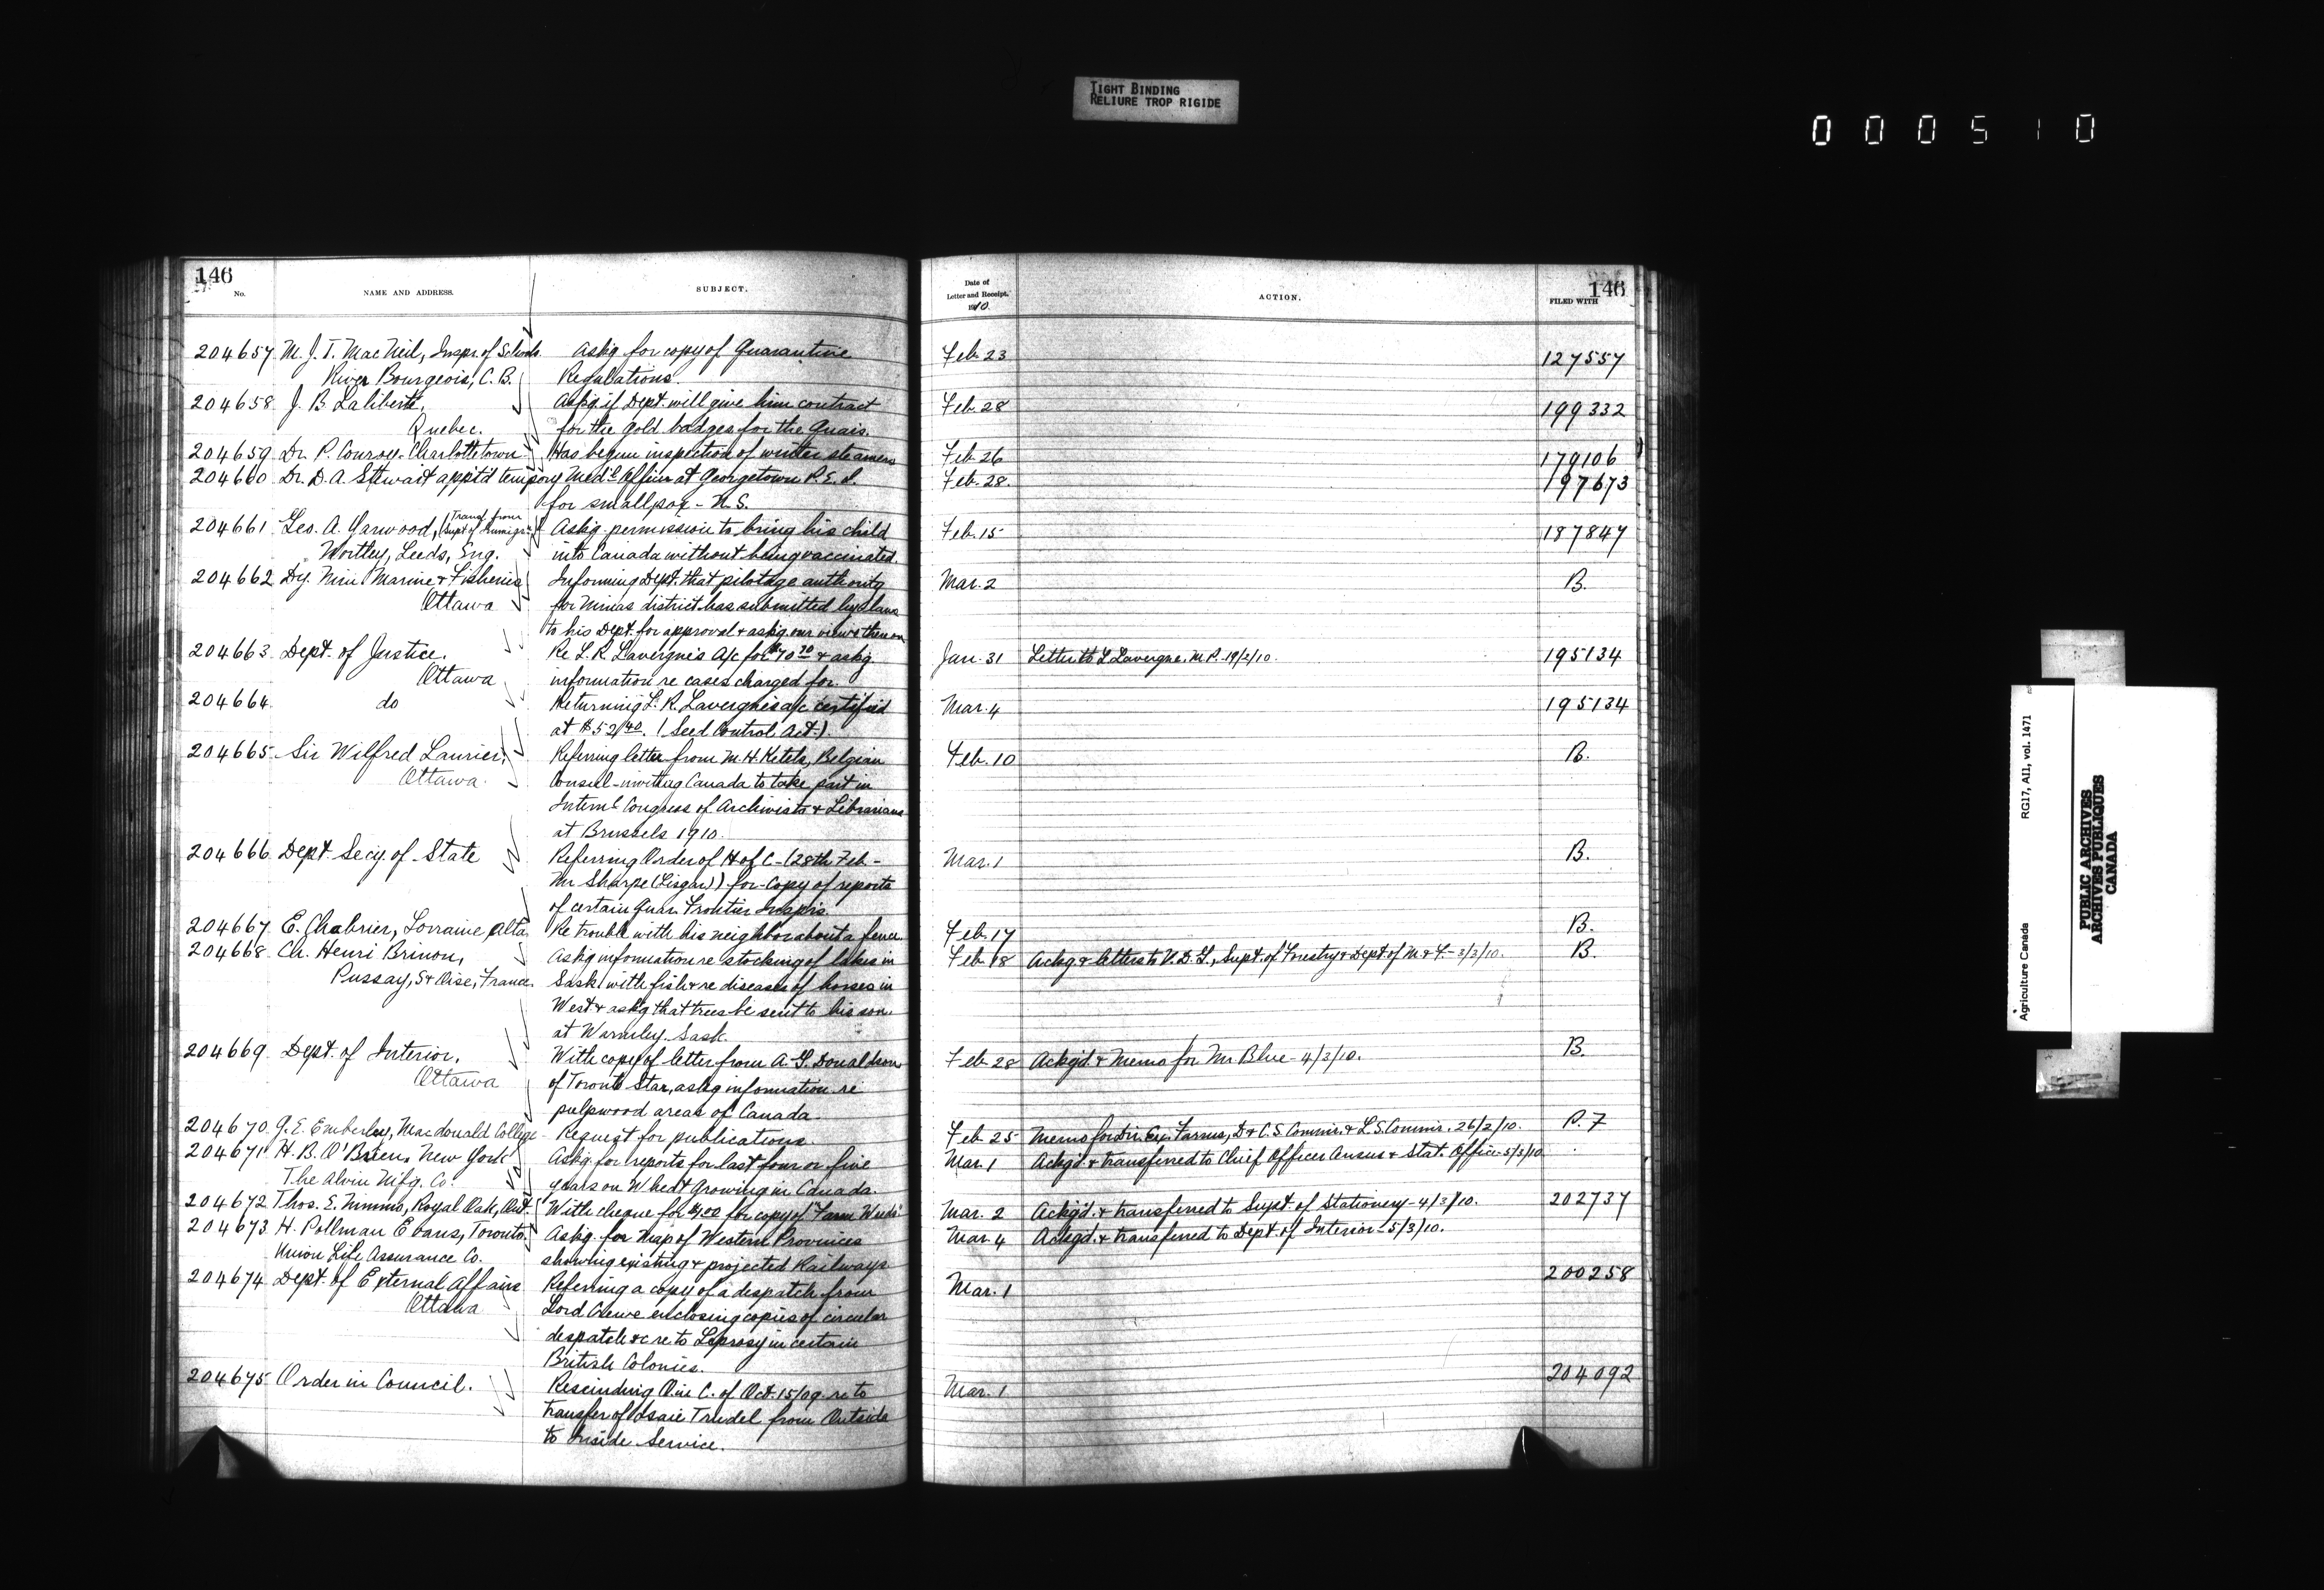 TIGHT BINDING
RELIURE TROP RIGIDE
000510
146
No.
NAME AND ADDRESS.
SUBJECT.
Date of
Letter and Receipt.
1910.
ACTION.
146
FILED WITH
204657 M. J. T. MacNeil, Inspr. of Schools. Askg for copy of Quarantine Feb 23 127557
River Bourgeois, C. B. Regulations.
204658 J. B Laliberté, Askg. if Dept. will give him contract Feb 28 199332
Quebec. for the gold badges for the Quars.
204659 Dr. P. Conroy - Charlottetown Has begun inspection of winter steamers Feb. 26 179106
204660 Dr. D. A. Stewart apptd tempory Med'l Officer at Georgetown P. E. I. Feb. 28. 197673
for smallpox - N. S.
204661 Geo. A. Garwood, (Transf from Supt of Immigr.) Askg. permission to bring his child Feb. 15 187847
Wortley, Leeds, Eng. into Canada without being vaccinated.
204662 Dy. Min. Marine & Fisheries Informing Dept. that pilotage authority Mar. 2 B.
Ottawa for Minas district has submitted by-laws
to his Dept. for approval & askg. our views thereon
204663 Dept. of Justice, Re L. R. Lavergne's A/c for $70 20 & askg Jan. 31 Letter to L Lavergne, M. P. 19/2/10. 195134
Ottawa information re cases charged for.
204664 do Returning L. R. Lavergne's a/c certified Mar. 4 195134
at $52/40. (Seed Control Act.)
204665 Sir Wilfred Laurier, Referring letter from M. H. Ketels, Belgian Feb. 10 B.
Ottawa. Consul - inviting Canada to take part in
Internl Congress of Archivists & Librarians
at Brussels 1910.
204666 Dept. Secy. of State Referring Order of H of C - (28th Feb - Mar. 1 B.
Mr Sharpe (Lisgar)) for - Copy of reports
of certain Quar. Frontier Insprs.
204667 E. Chabrier, Lorraine Alta. Re trouble with his neighbor about a fence Feb. 17 B.
204668 Ch. Henri Brinon, Askg information re stocking of lakes in Feb. 18 Ackg & letters to V. D. G., Supt. of Forestry & Dept. of M. & F. - 3/3/10. B.
Pussay, S & Oise, France. Sask. with fish & re diseases of horses in
West & askg that trees be sent to his son.
at Warmley Sask.
204669 Dept. of Interior, With copy of letter from A. G. Donaldson Feb 28 Ackg'd & Memo for Mr. Blue - 4/3/10. B.
Ottawa of Toronto Star, askg information re
pulpwood areas of Canada.
204670 G. E. Emberley, Macdonald College Request for publications. Feb 25 Memo for Dir. Ex. Farms, D & C. S. Commir. & L. S. Commir. 26/2/10. P. 7
204671 H. B. O'Brien, New York Askg for reports for last four or five Mar. 1 Ackg'd & transferred to Chief Officer Census & Stat. Office 5/3/10
The Alvin M'f'g. Co. years on Wheat Growing in Canada.
204672 Thos. E. Nimmo, Royal Oak, Ont. With cheque for $1.00 for copy of "Farm Weeds" Mar. 2 Ackg'd. & transferred to Supt. of Stationery - 4/3/10. 202737
204673 H. Pollman Evans, Toronto. Askg. for Map of Western Provinces Mar. 4 Ackg'd. & transferred to Dept. of Interior - 5/3/10.
Union Life Assurance Co. showing existing & projected Railways
204674 Dept. of External Affairs Referring a copy of a despatch from Mar. 1 200258
Ottawa Lord Crewe enclosing copies of circular
despatch &c re to Leprosy in certain
British Colonies.
204675 Order in Council. Rescinding O. in C. of Oct. 15/09 re to Mar. 1 204092
transfer of Isaie Trudel from Outside
to Inside Service.
Agriculture Canada RG17, A11, vol. 1471
PUBLIC ARCHIVES
ARCHIVES PUBLIQUES
CANADA